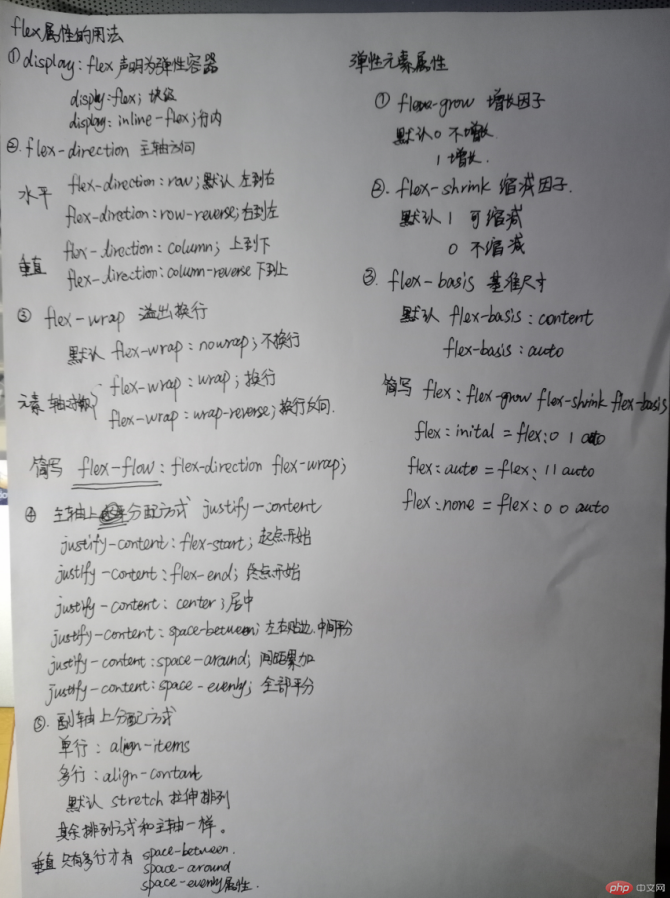 flex属性的用法
①display:flex声明为弹性容器
display:flex;块级
display:inline-flex;行内
②.flex-direction 主轴方向
水平 flex-direction:row;默认 左到右
flex-direction:row-reverse;右到左
垂直 flex-direction:column; 上到下
flex-direction:column-reverse 下到上
③ flex-wrap 溢出换行
默认 flex-wrap:nowrap;不换行
元素 flex-wrap:wrap;换行
flex-wrap:wrap-reverse;换行反向.
简写 flex-flow:flex-direction flex-wrap;
④ 主轴上分配方式 justify-content
justify-content:flex-start;起点开始
justify-content:flex-end;终点开始
justify-content:center;居中
justify-content:space-between;左右贴边.中间平分
justify-content:space-around;间距累加
justify-content:space-evenly;全部平分
⑤.副轴上分配方式
单行:align-items
多行:align-contant
默认 stretch 拉伸排列
其余排列方式和主轴一样。
垂直 只有多行才有 space-between.
space-around
space-evenly属性.
弹性元素属性
① flex-grow 增长因子
默认0 不增长
1 增长.
②.flex-shrink 缩减因子.
默认1 可缩减
0 不缩减
③.flex-basis 基准尺寸
默认 flex-basis:content
flex-basis:auto
简写 flex:flex-grow flex-shrink flex-basis
flex:inital = flex:0 1 auto
flex:auto = flex:1 1 auto
flex:none = flex:0 0 auto
php 中文网